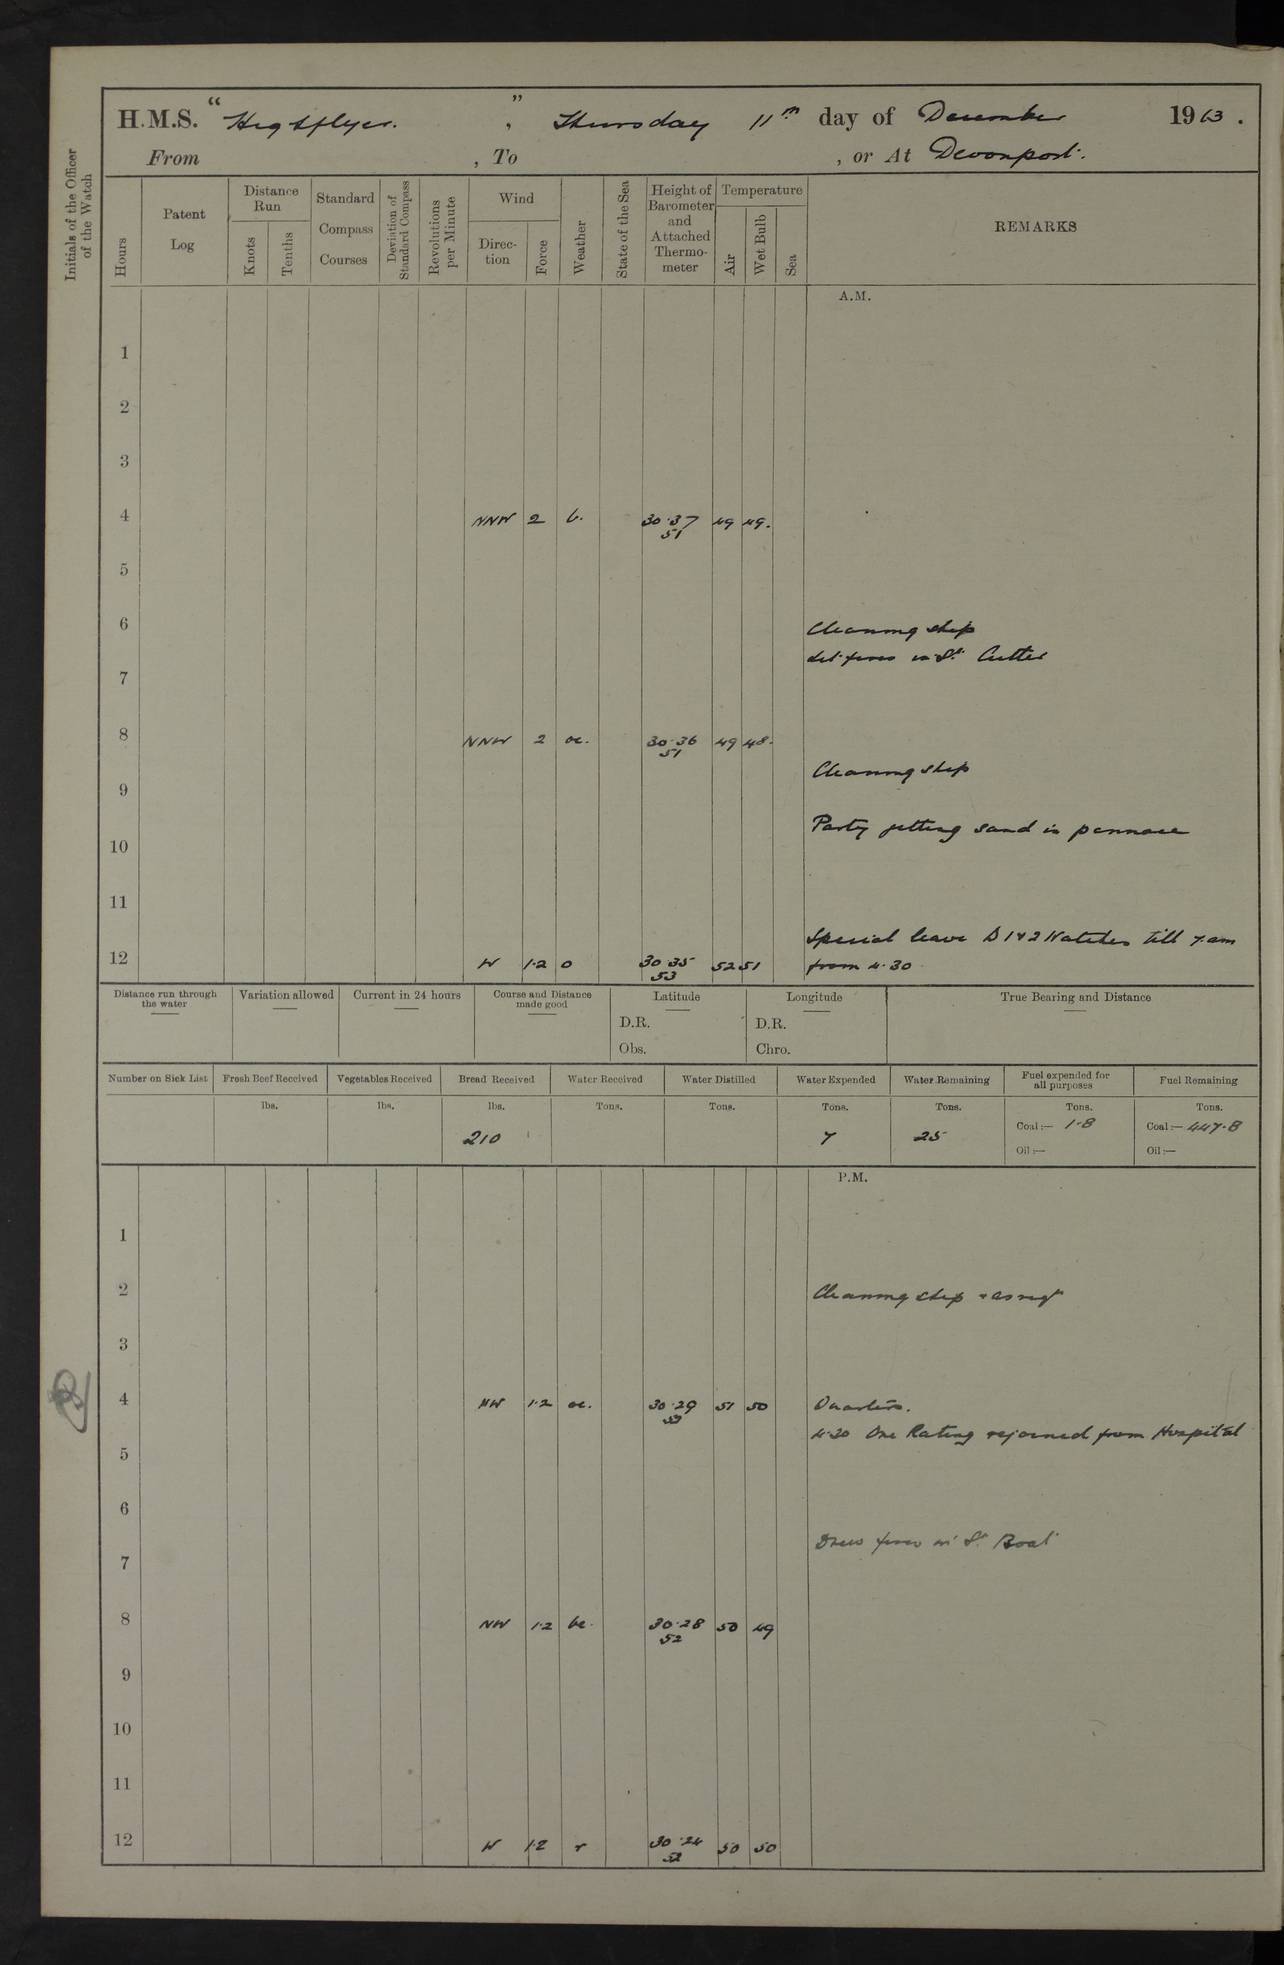 H.M.S. "Highflyer.", Thursday 11th day of December 1913.
From , To , or At Devonport.
Initials of the Officer of the Watch
Hours
Patent Log
Distance Run
Knots
Tenths
Standard Compass Courses
Deviation of Standard Compass
Revolutions per Minute
Wind
Direction
Force
Weather
State of the Sea
Height of Barometer and Attached Thermometer
Temperature
Air
Wet Bulb
Sea
REMARKS
A.M.
1
2
3
4 NNW 2 b. 30.37 49 49.
51
5
6 Cleaning ship
Lit fires in St. Cutter
7
8 NNW 2 oc. 30.36 49 48.
51
Cleaning ship
9
Party getting sand in pinnace
10
11
Special leave D 1 & 2 Watches till 7 am
12 W 1.2 o 30 35 52 51 from 4.30
53
Distance run through the water
Variation allowed
Current in 24 hours
Course and Distance made good
Latitude
D.R.
Obs.
Longitude
D.R.
Chro.
True Bearing and Distance
Number on Sick List
Fresh Beef Received lbs.
Vegetables Received lbs.
Bread Received lbs. 210
Water Received Tons.
Water Distilled Tons.
Water Expended Tons. 7
Water Remaining Tons. 25
Fuel expended for all purposes Tons.
Coal:— 1.8
Oil:—
Fuel Remaining Tons.
Coal:— 447.8
Oil:—
P.M.
1
2 Cleaning ship & as reqt
3
4 NW 1.2 oc. 30.29 51 50 Quarters.
53
4.30 One Rating rejoined from Hospital
5
6
Drew fires in St. Boat
7
8 NW 1.2 bc. 30.28 50 49
52
9
10
11
12 W 1.2 r 30.24 50 50
52